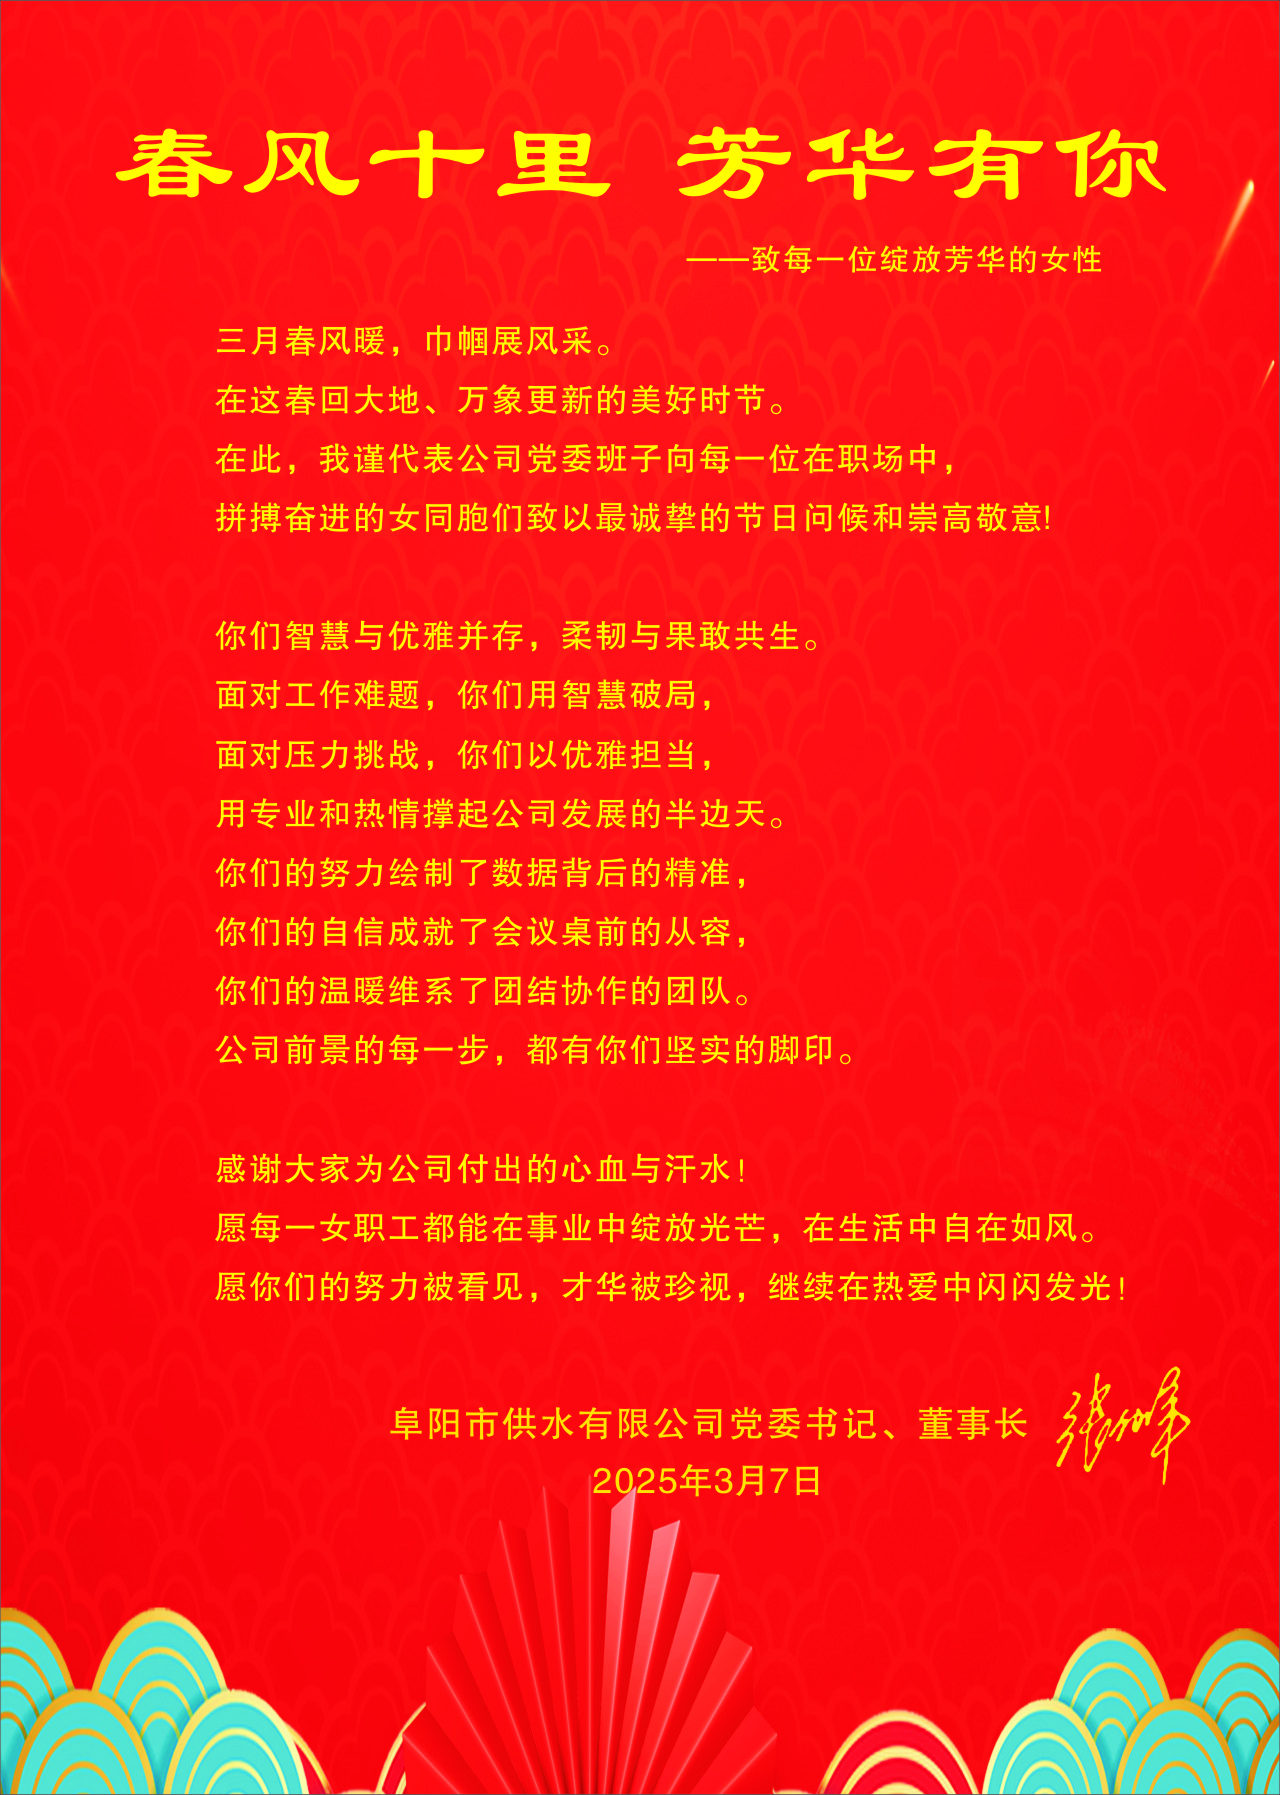 春风十里 芳华有你
——致每一位绽放芳华的女性
三月春风暖，巾帼展风采。
在这春回大地、万象更新的美好时节。
在此，我谨代表公司党委班子向每一位在职场中，
拼搏奋进的女同胞们致以最诚挚的节日问候和崇高敬意!
你们智慧与优雅并存，柔韧与果敢共生。
面对工作难题，你们用智慧破局，
面对压力挑战，你们以优雅担当，
用专业和热情撑起公司发展的半边天。
你们的努力绘制了数据背后的精准，
你们的自信成就了会议桌前的从容，
你们的温暖维系了团结协作的团队。
公司前景的每一步，都有你们坚实的脚印。
感谢大家为公司付出的心血与汗水!
愿每一女职工都能在事业中绽放光芒，在生活中自在如风。
愿你们的努力被看见，才华被珍视，继续在热爱中闪闪发光!
阜阳市供水有限公司党委书记、董事长
2025年3月7日